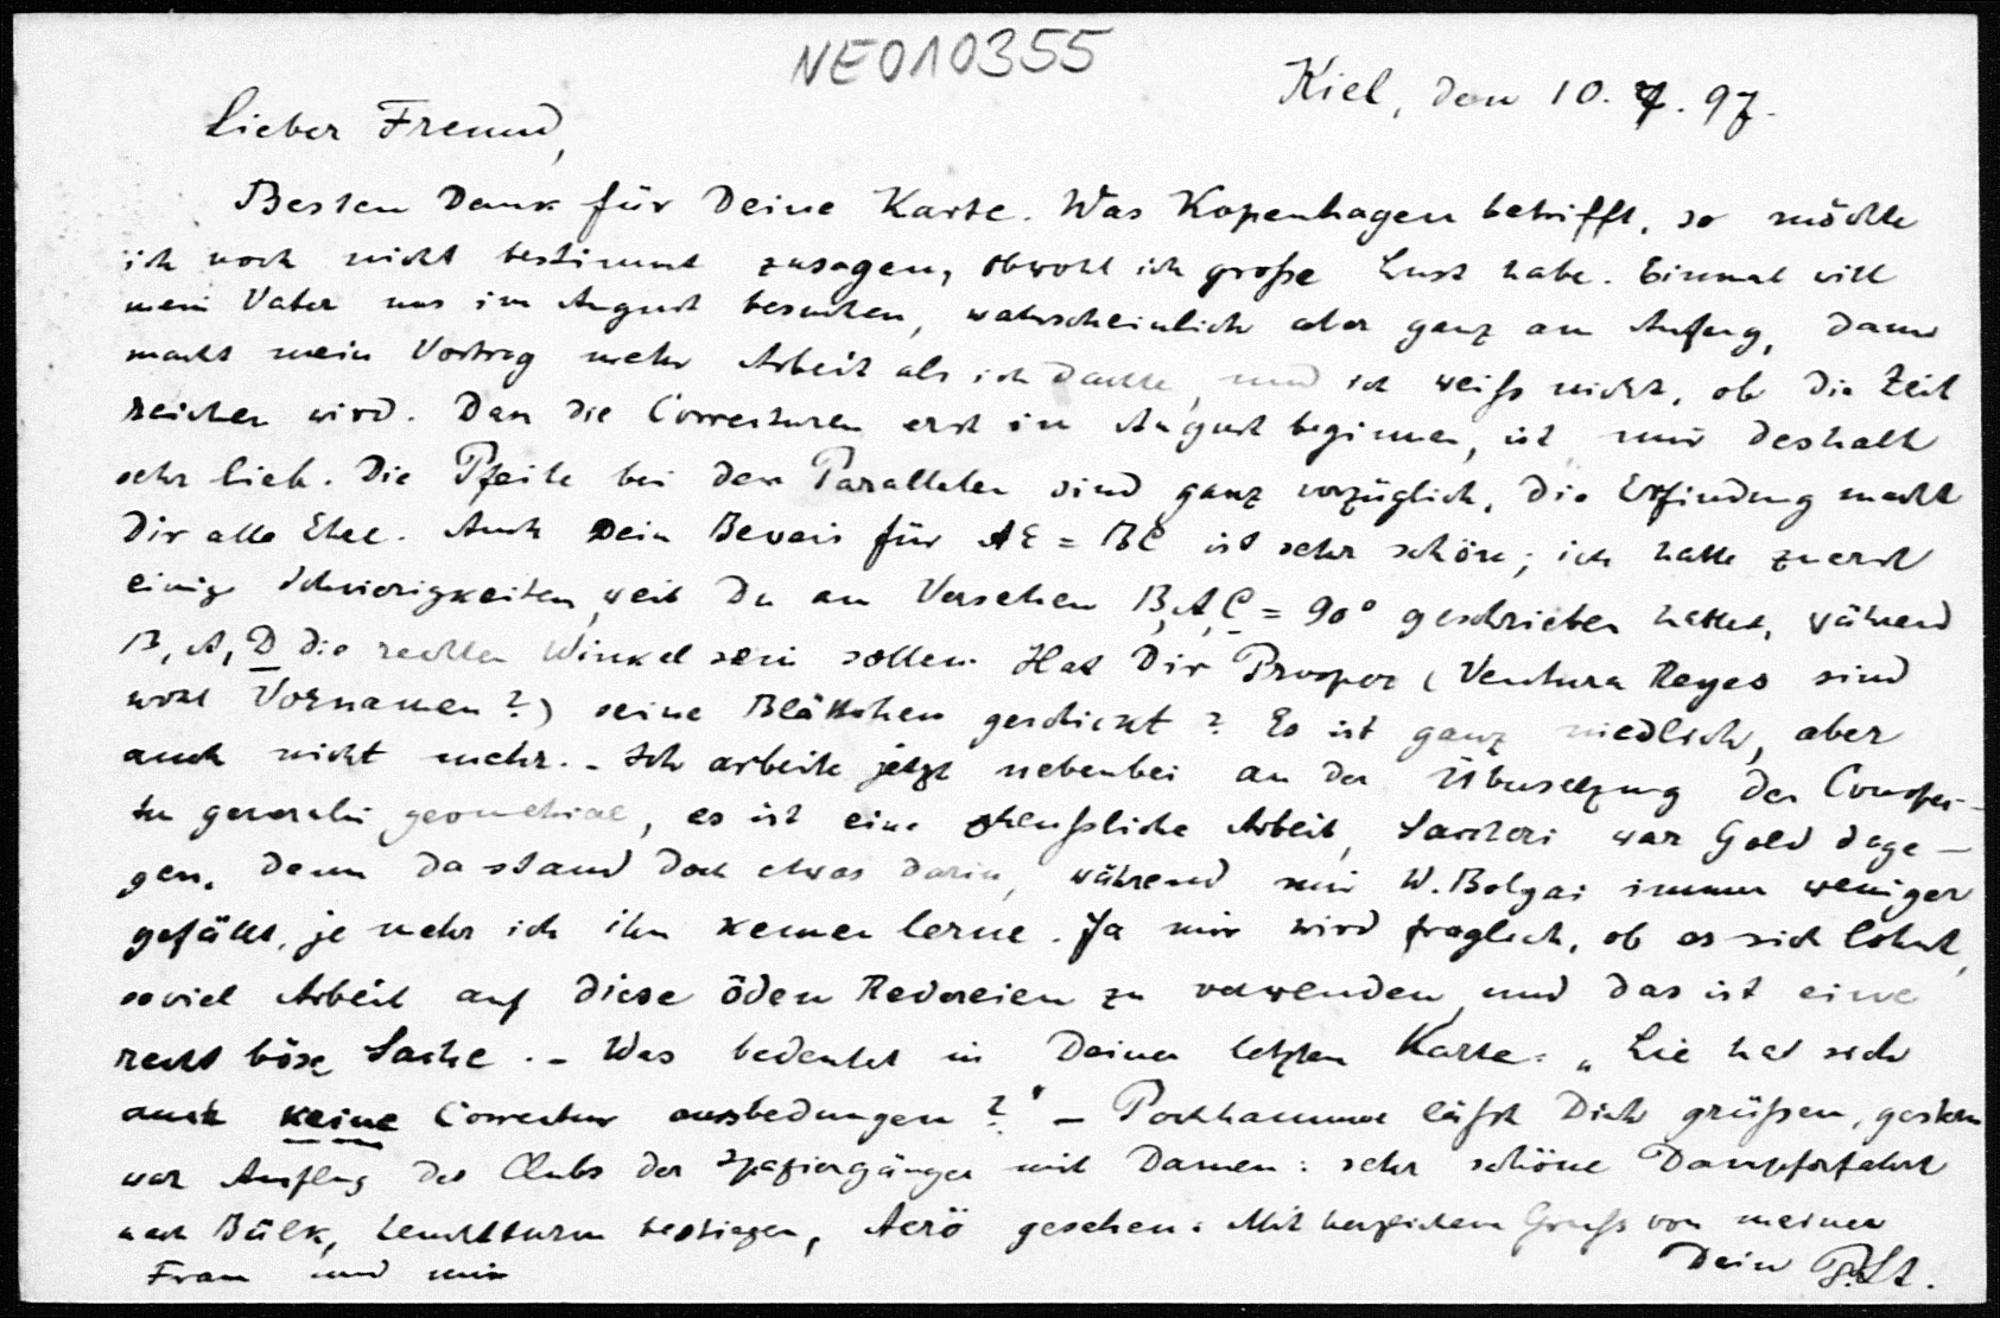 NE010355
Kiel, den 10. 7. 97.
Lieber Freund,
Besten Dank für Deine Karte. Was Kopenhagen betrifft, so möchte
ich noch nicht bestimmt zusagen, obwohl ich große Lust habe. Einmal will
mein Vater uns im August besuchen, wahrscheinlich aber ganz am Anfang, dann
macht mein Vortrag mehr Arbeit als ich dachte, und ich weiß nicht, ob die Zeit
reichen wird. Dass die Correcturen erst im August beginnen, ist mir deshalb
sehr lieb. Die Pfeile bei den Parallelen sind ganz vorzüglich, die Erfindung macht
Dir alle Ehre. Auch Dein Beweis für AE = BC ist sehr schön; ich hatte zuerst
einige Schwierigkeiten, weil Du aus Versehen B, A, C = 90° geschrieben hattest, während
B, A, D die rechten Winkel sein sollen. Hat Dir Prosper (Ventura Reyes sind
wohl Vornamen?) seine Blättchen geschickt? Es ist ganz niedlich, aber
auch nicht mehr. – Ich arbeite jetzt nebenbei an der Übersetzung der Conspec-
tu generali geometriae, es ist eine scheußliche Arbeit, Saccheri war Gold dage-
gen, denn da stand doch etwas darin, während mir W. Bolyai immer weniger
gefällt, je mehr ich ihn kennen lerne. Ja mir wird fraglich, ob es sich lohnt,
soviel Arbeit auf diese öden Redereien zu verwenden, und das ist eine
recht böse Sache. – Was bedeutet in Deiner letzten Karte: „Lie hat sich
auch keine Correctur ausbedungen?" – Pochhammer läßt Dich grüßen, gestern
war Ausflug des Clubs der Spaziergänger mit Damen: sehr schöne Dampferfahrt
nach Bülk, Leuchtturm bestiegen, Aerö gesehen. Mit herzlichem Gruß von meiner
Frau und mir
Dein P. St.